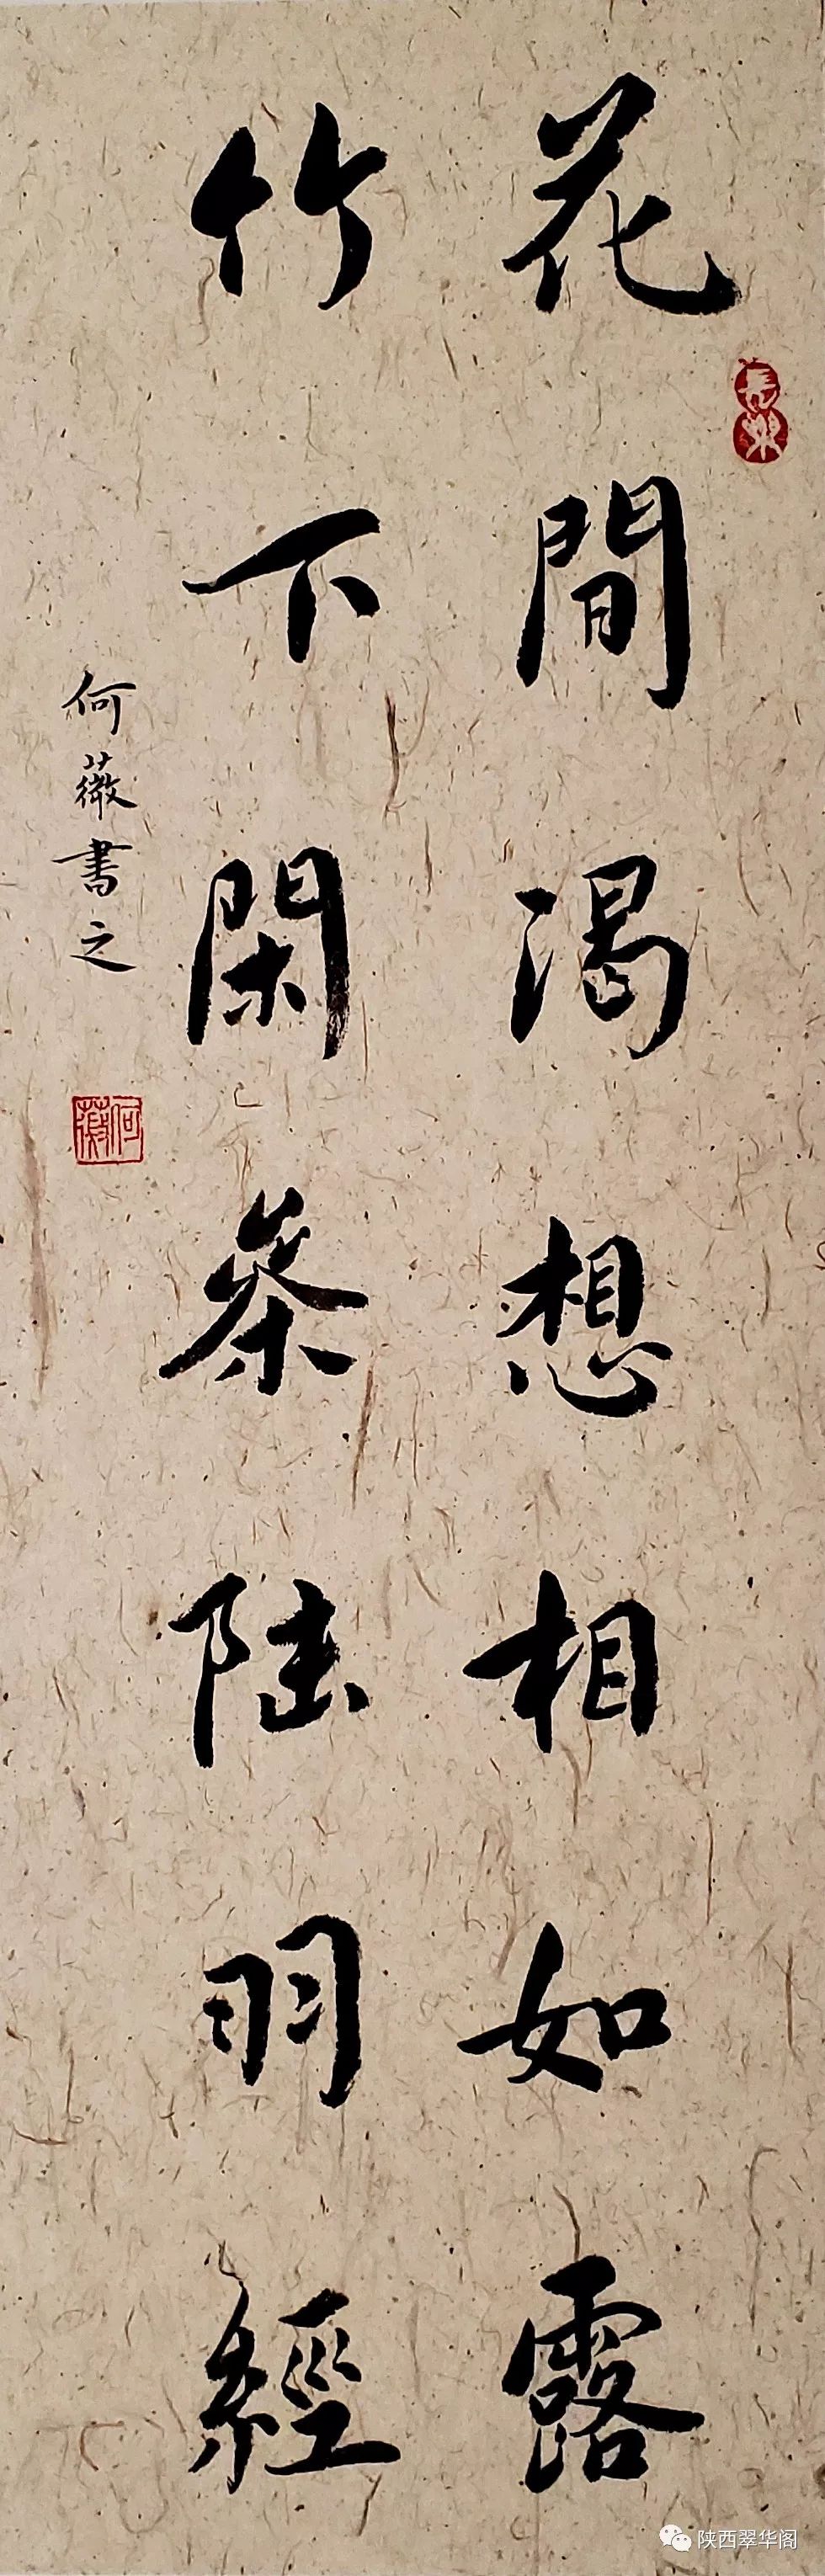 花間渴想相如露
竹下閑茶陸羽經
何薇書之
長樂
何薇
陕西翠华阁